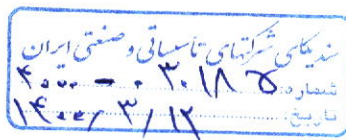 سندیکای شرکتهای تاسیساتی و صنعتی ایران
شماره: ۴۰۰۰ - ۰۳۰۱۸۵
تاریخ: ۱۴۰۰/۳/۱۲